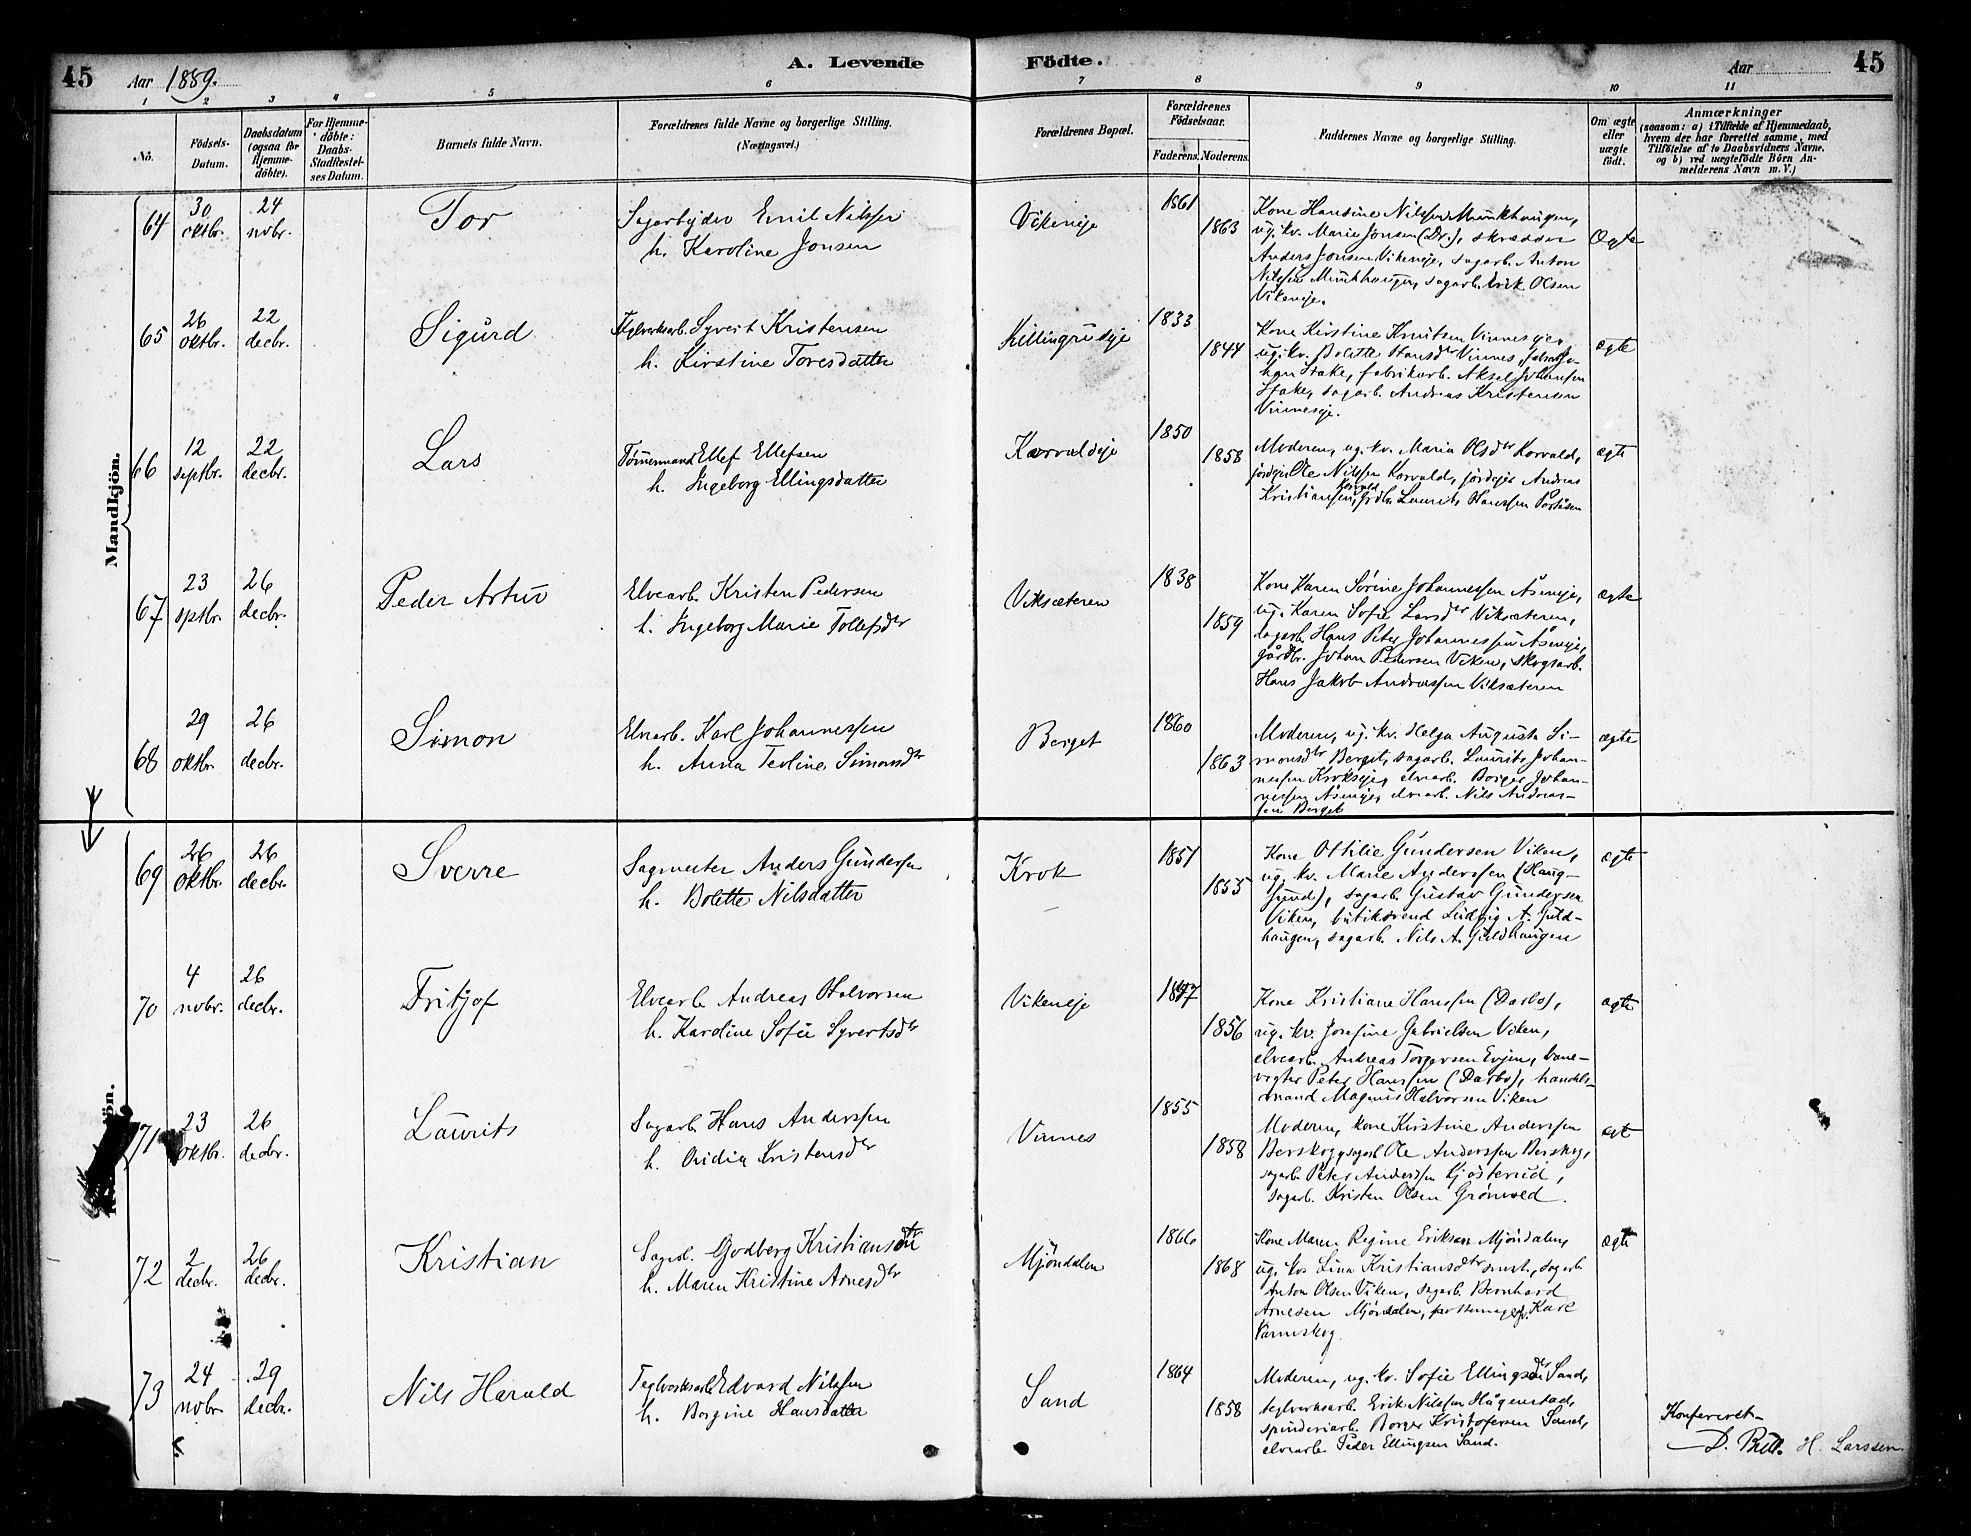 45 Aar 1889. A. Levende Födte. Aar 45
1 2 3 4 5 6 7 8 9 10 11
No.
Födsels-
Datum.
Daabsdatum
(ogsaa for
Hjemme-
döbte).
For Hjemme-
döbte:
Daabs-
Stadfestel-
ses Datum.
Barnets fulde Navn.
Forældrenes fulde Navne og borgerlige Stilling.
(Næringsvei.)
Forældrenes Bopæl.
Forældrenes
Födselsaar.
Faderens. Moderens.
Faddernes Navne og borgerlige Stilling.
Om ægte
eller
uægte
födt.
Anmærkninger
(saasom: a) i Tilfælde af Hjemmedaab,
hvem der har forrettet samme, med
Tilföielse af to Daabsvidners Navne.
og b) ved uægtefödte Börn An-
melderens Navn m. V.)
Mandkjön.
64
30
oktbr.
24
novbr.
Tor
Sagarbejder Emil Nilssen
h. Karoline Jonsen
Vikeneje
1861
1863
Kone Hansine Nilssen Munkhaugen,
ug. kv. Marie Jonsen (Dr.), skrædder
Anders Jonsen Vikeneje, sagarb. Anton
Nilssen Munkhaugen, sagarb. Erik Olsen
Vikeneje.
Ægte
65
26
oktbr.
22
decbr.
Sigurd
Teglverksarb. Syvert Kristensen
h. Kirstine Toresdatter
Killingrudeje
1833
1844
Kone Kirstine Knutsen Vinneseje,
ug. kv. Bolette Hansdtr Vinnes, Jo-
han Stake, fabrikarb. Aksel Johansen
Stake, sagarb. Andreas Kristensen
Vinneseje.
ægte
66
12
septbr.
22
decbr.
Lars
Tömmermand Ellef Ellefsen
h. Ingeborg Ellingsdatter
Korvaldeje
1850
1858
Moderen, ug. kv. Maria Olsdtr Korvald,
jordejer Ole Nilssen Korvald, jordejer Andreas
Kristiansen Korvald, Laurits Hanssen Portåsen
ægte
67
23
sptbr.
26
decbr.
Peder Artur
Elvearb. Kristen Pedersen
h. Ingeborg Marie Tollefsdtr
Viksæteren
1838
1859
Kone Karen Sörine Johannessen Åseneje,
ug. Karen Sofie Larsdtr Viksæteren,
sagarb. Hans Peter Johannessen Åseneje,
gårdbr. Johan Pedersen Viken, skogsarb.
Hans Jakob Andreassen Viksæteren
ægte
68
29
oktbr.
26
decbr.
Simon
Elvearb. Karl Johannessen
h. Anna Teoline Simonsdtr
Berget
1860
1863
Moderen, ug. kv. Helga Augusta Si-
monsdtr Berget, sagarb. Laurits Johan-
nessen Krokseje, elvearb. Borger Johan-
nessen Åseneje, elvearb. Nils Andreas-
sen Berget
ægte
69
26
oktbr.
26
decbr.
Sverre
Sagmester Anders Gundersen
h. Bolette Nilsdatter
Krok
1851
1855
Kone Othilie Gundersen Viken,
ug. kv. Marie Anderssen (Haug-
sund), sagarb. Gustav Gundersen
Viken, butiksvend Ludvig A. Guld-
haugen, sagarb. Nils A. Guldhaugen
ægte
70
4
novbr.
26
decbr.
Fritjof
Elvearb. Andreas Halvorsen
h. Karoline Sofie Syvertsdtr
Vikeneje
1847
1856
Kone Kristiane Hanssen (Darbo),
ug. kv. Josefine Gabrielsen Viken,
elvearb. Andreas Torgersen Evjen, bane-
vogter Peter Hanssen (Darbo), handels-
mand Magnus Halvorsen Viken
ægte
71
23
oktbr.
26
decbr.
Laurits
Sagarb. Hans Anderssen
h. Oridia Kristensdtr
Vinnes
1855
1858
Moderen, kone Kirstine Anderssen
Berskog, sagarb. Ole Anderssen Berskog,
sagarb. Peter Anderssen Gjösterud,
sagarb. Kristen Olsen Grönvold.
ægt
72
2
decbr.
26
decbr.
Kristian
Sagarb. Godberg Kristiansen
h. Maren Kristine Arnesdtr
Mjöndalen
1866
1868
Kone Maren Regine Eriksen Mjöndalen,
ug. kv. Lina Kristiansdtr smst., sagarb.
Anton Olsen Viken, sagarb. Bernhard
Arnesen Mjöndalen, Karl
Varmskog.
ægte
73
24
novbr.
29
decbr.
Nils Harald
Teglverksarb. Edvard Nilssen
h. Borgine Hansdatter
Sand
1864
1858
Moderen, ug. kv. Sofie Ellingsdtr Sand,
teglverksarb. Erik Nilssen Hågenstad,
spinderiarb. Borger Kristofersen Sand,
elvearb. Peder Ellingsen Sand.
Konfereret
H. Larssen